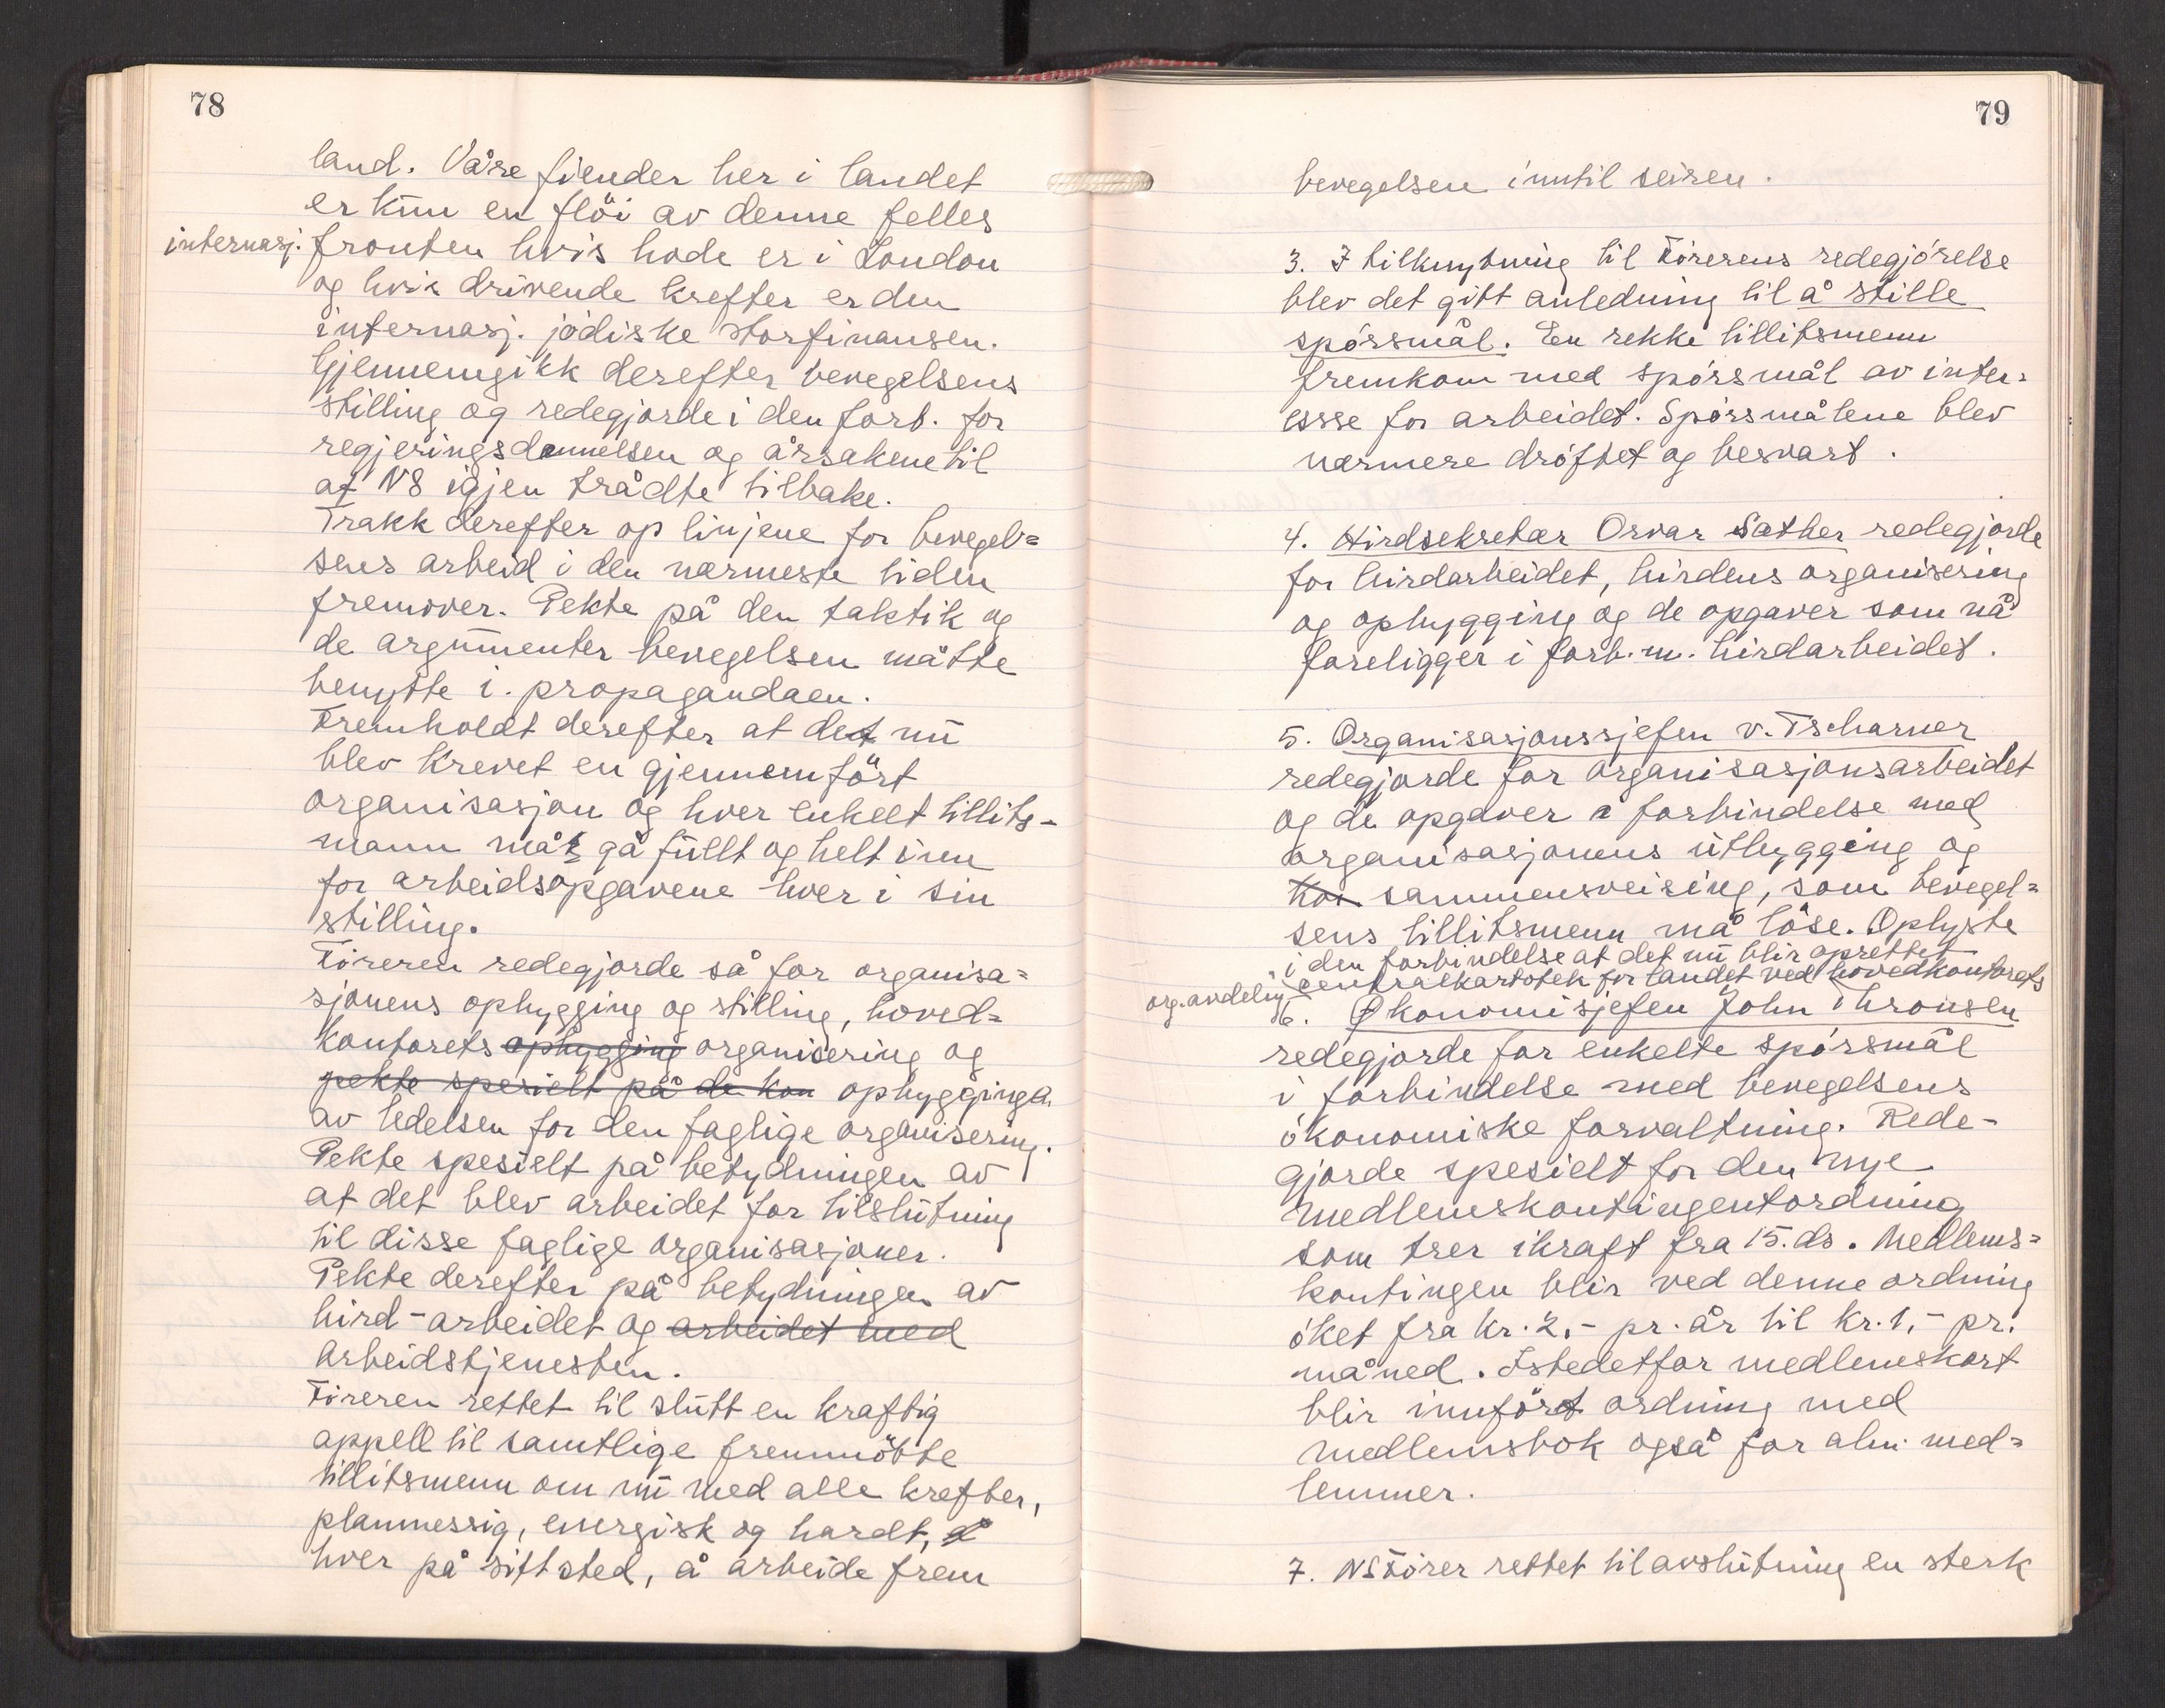 78
land. Våre fiender her i landet
er kun en flöi av denne felles
internasj. fronten hvis hode er i London
og hvis drivende krefter er den
internasj. jödiske storfinansen.
Gjennemgikk derefter bevegelsens
stilling og redegjorde i den forb. for
regjeringsdannelsen og årsakene til
at NS igjen trådte tilbake.
Trakk derefter op linjene for bevegel=
sens arbeid i den nærmeste tiden
fremover. Pekte på den taktik og
de argumenter bevegelsen måtte
benytte i. propagandaen.
Fremholdt derefter at det nu
blev krevet en gjennemfört
organisasjon og hver enkelt tillits-
mann må gå fullt og helt inn
for arbeidsopgavene hver i sin
stilling.
Föreren redegjorde så for organisa=
sjonens ophygging og stilling, hoved=
kontorets ophygging organisering og
pekte spesielt på de kon ophygginga.
av ledelsen for den faglige organisering.
Pekte spesielt på betydningen av
at det blev arbeidet for tilslutning
til disse faglige organisasjoner.
Pekte derefter på betydningen av
hird-arbeidet og arbeidet med
arbeidstjenesten.
Föreren rettet til slutt en kraftig
appell til samtlige fremmötte
tillitsmenn om nu med alle krefter,
planmessig, energisk og hardt, å
hver på sitt sted, å arbeide frem
79
bevegelsen inntil seiren.
3. I tilknytning til Förerens redegjörelse
blev det gitt anledning til å stille
spörsmål. En rekke tillitsmenn
fremkom med spörsmål av inter=
essse for arbeidet. Spörsmålene blev
nærmere dröftet og besvart.
4. Hirdsekretær Orvar Sæther redegjorde
for hirdarbeidet, hirdens organisering
og ophygging og de opgaver som nå
foreligger i forb. m. hirdarbeidet.
5. Organisasjonssjefen v. Tscharner
redegjorde for organisasjonsarbeidet
og de opgaver i forbindelse med
organisasjonens uthygging og
sammensveising, som bevegel=
sens tillitsmenn må löse. Oplyste
i den forbindelse at det nu blir oprettet
centralkartotek for landet ved hovedkontorets
org.avdeling.
6. Økonomisjefen John Thronsen
redegjorde for enkelte spörsmål
i forbindelse med bevegelsens
ökonomiske forvaltning. Rede-
gjorde spesielt for den nye
medlemskontingentordning
som trer ikraft fra 15. ds. Medlems=
kontingen blir ved denne ordning
öket fra kr. 2,- pr. år til kr. 1,- pr.
måned. Istedetfor medlemskort
blir innfört ordning med
medlemsbok også for alm. med=
lemmer.
7. NS Förer rettet til avslutning en sterk